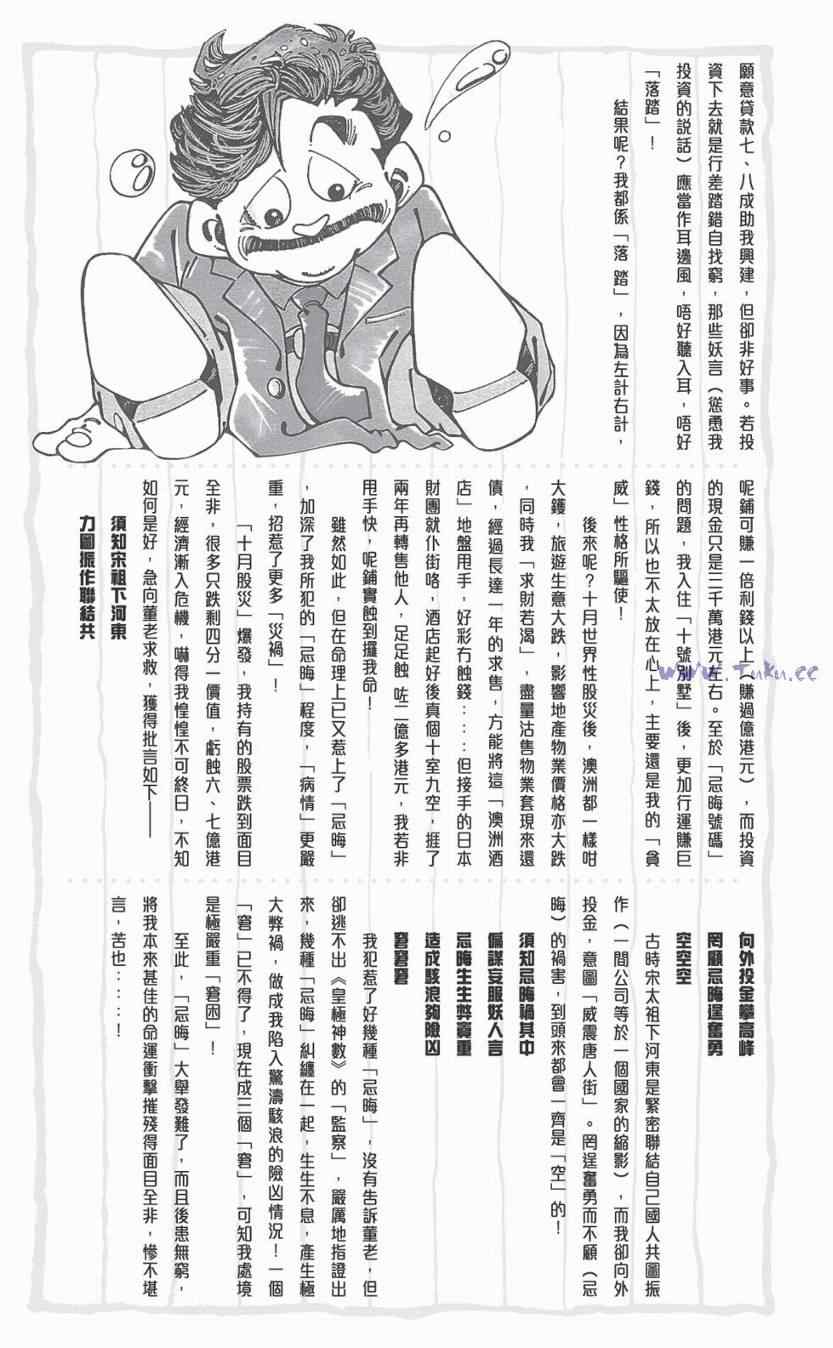 願意貸款七、八成助我興建，但卻非好事。若投
資下去就是行差踏錯自找窮，那些妖言（慫恿我
投資的説話）應當作耳邊風，唔好聽入耳，唔好
「落踏」！
結果呢？我都係「落踏」，因為左計右計，
呢鋪可賺一倍利錢以上（賺過億港元），而投資
的現金只是三千萬港元左右。至於「忌晦號碼」
的問題，我入住「十號別墅」後，更加行運賺巨
錢，所以也不太放在心上，主要還是我的「貪
威」性格所驅使！
後來呢？十月世界性股災後，澳洲都一樣咁
大鑊，旅遊生意大跌，影響地產物業價格亦大跌
，同時我「求財若渴」，盡量沽售物業套現來還
債，經過長達一年的求售，方能將這「澳洲酒
店」地盤甩手，好彩冇蝕錢：：：但接手的日本
財團就仆街咯，酒店起好後真個十室九空，捱了
兩年再轉售他人，足足蝕咗二億多港元，我若非
甩手快，呢鋪實蝕到攞我命！
雖然如此，但在命理上已又惹上了「忌晦」
，加深了我所犯的「忌晦」程度，「病情」更嚴
重，招惹了更多「災禍」！
「十月股災」爆發，我持有的股票跌到面目
全非，很多只跌剩四分一價值，虧蝕六、七億港
元，經濟漸入危機，嚇得我惶惶不可終日，不知
如何是好，急向董老求救，獲得批言如下——
須知宋祖下河東
力圖振作聯結共
向外投金攀高峰
罔顧忌晦逞奮勇
空空空
古時宋太祖下河東是緊密聯結自己國人共圖振
作（一間公司等於一個國家的縮影），而我卻向外
投金，意圖「威震唐人街」。罔逞奮勇而不顧（忌
晦）的禍害，到頭來都會一齊是「空」的！
須知忌晦禍其中
偏謀妄服妖人言
忌晦生生弊竇重
造成駭浪夠險凶
窘窘窘
我犯惹了好幾種「忌晦」，沒有告訴董老，但
卻逃不出《皇極神數》的「監察」，嚴厲地指證出
來，幾種「忌晦」糾纏在一起，生生不息，產生極
大弊禍，做成我陷入驚濤駭浪的險凶情況！一個
「窘」已不得了，現在成三個「窘」，可知我處境
是極嚴重「窘困」！
至此，「忌晦」大舉發難了，而且後患無窮，
將我本來甚佳的命運衝擊摧殘得面目全非，慘不堪
言，苦也：：：！
www.Tuku.cc